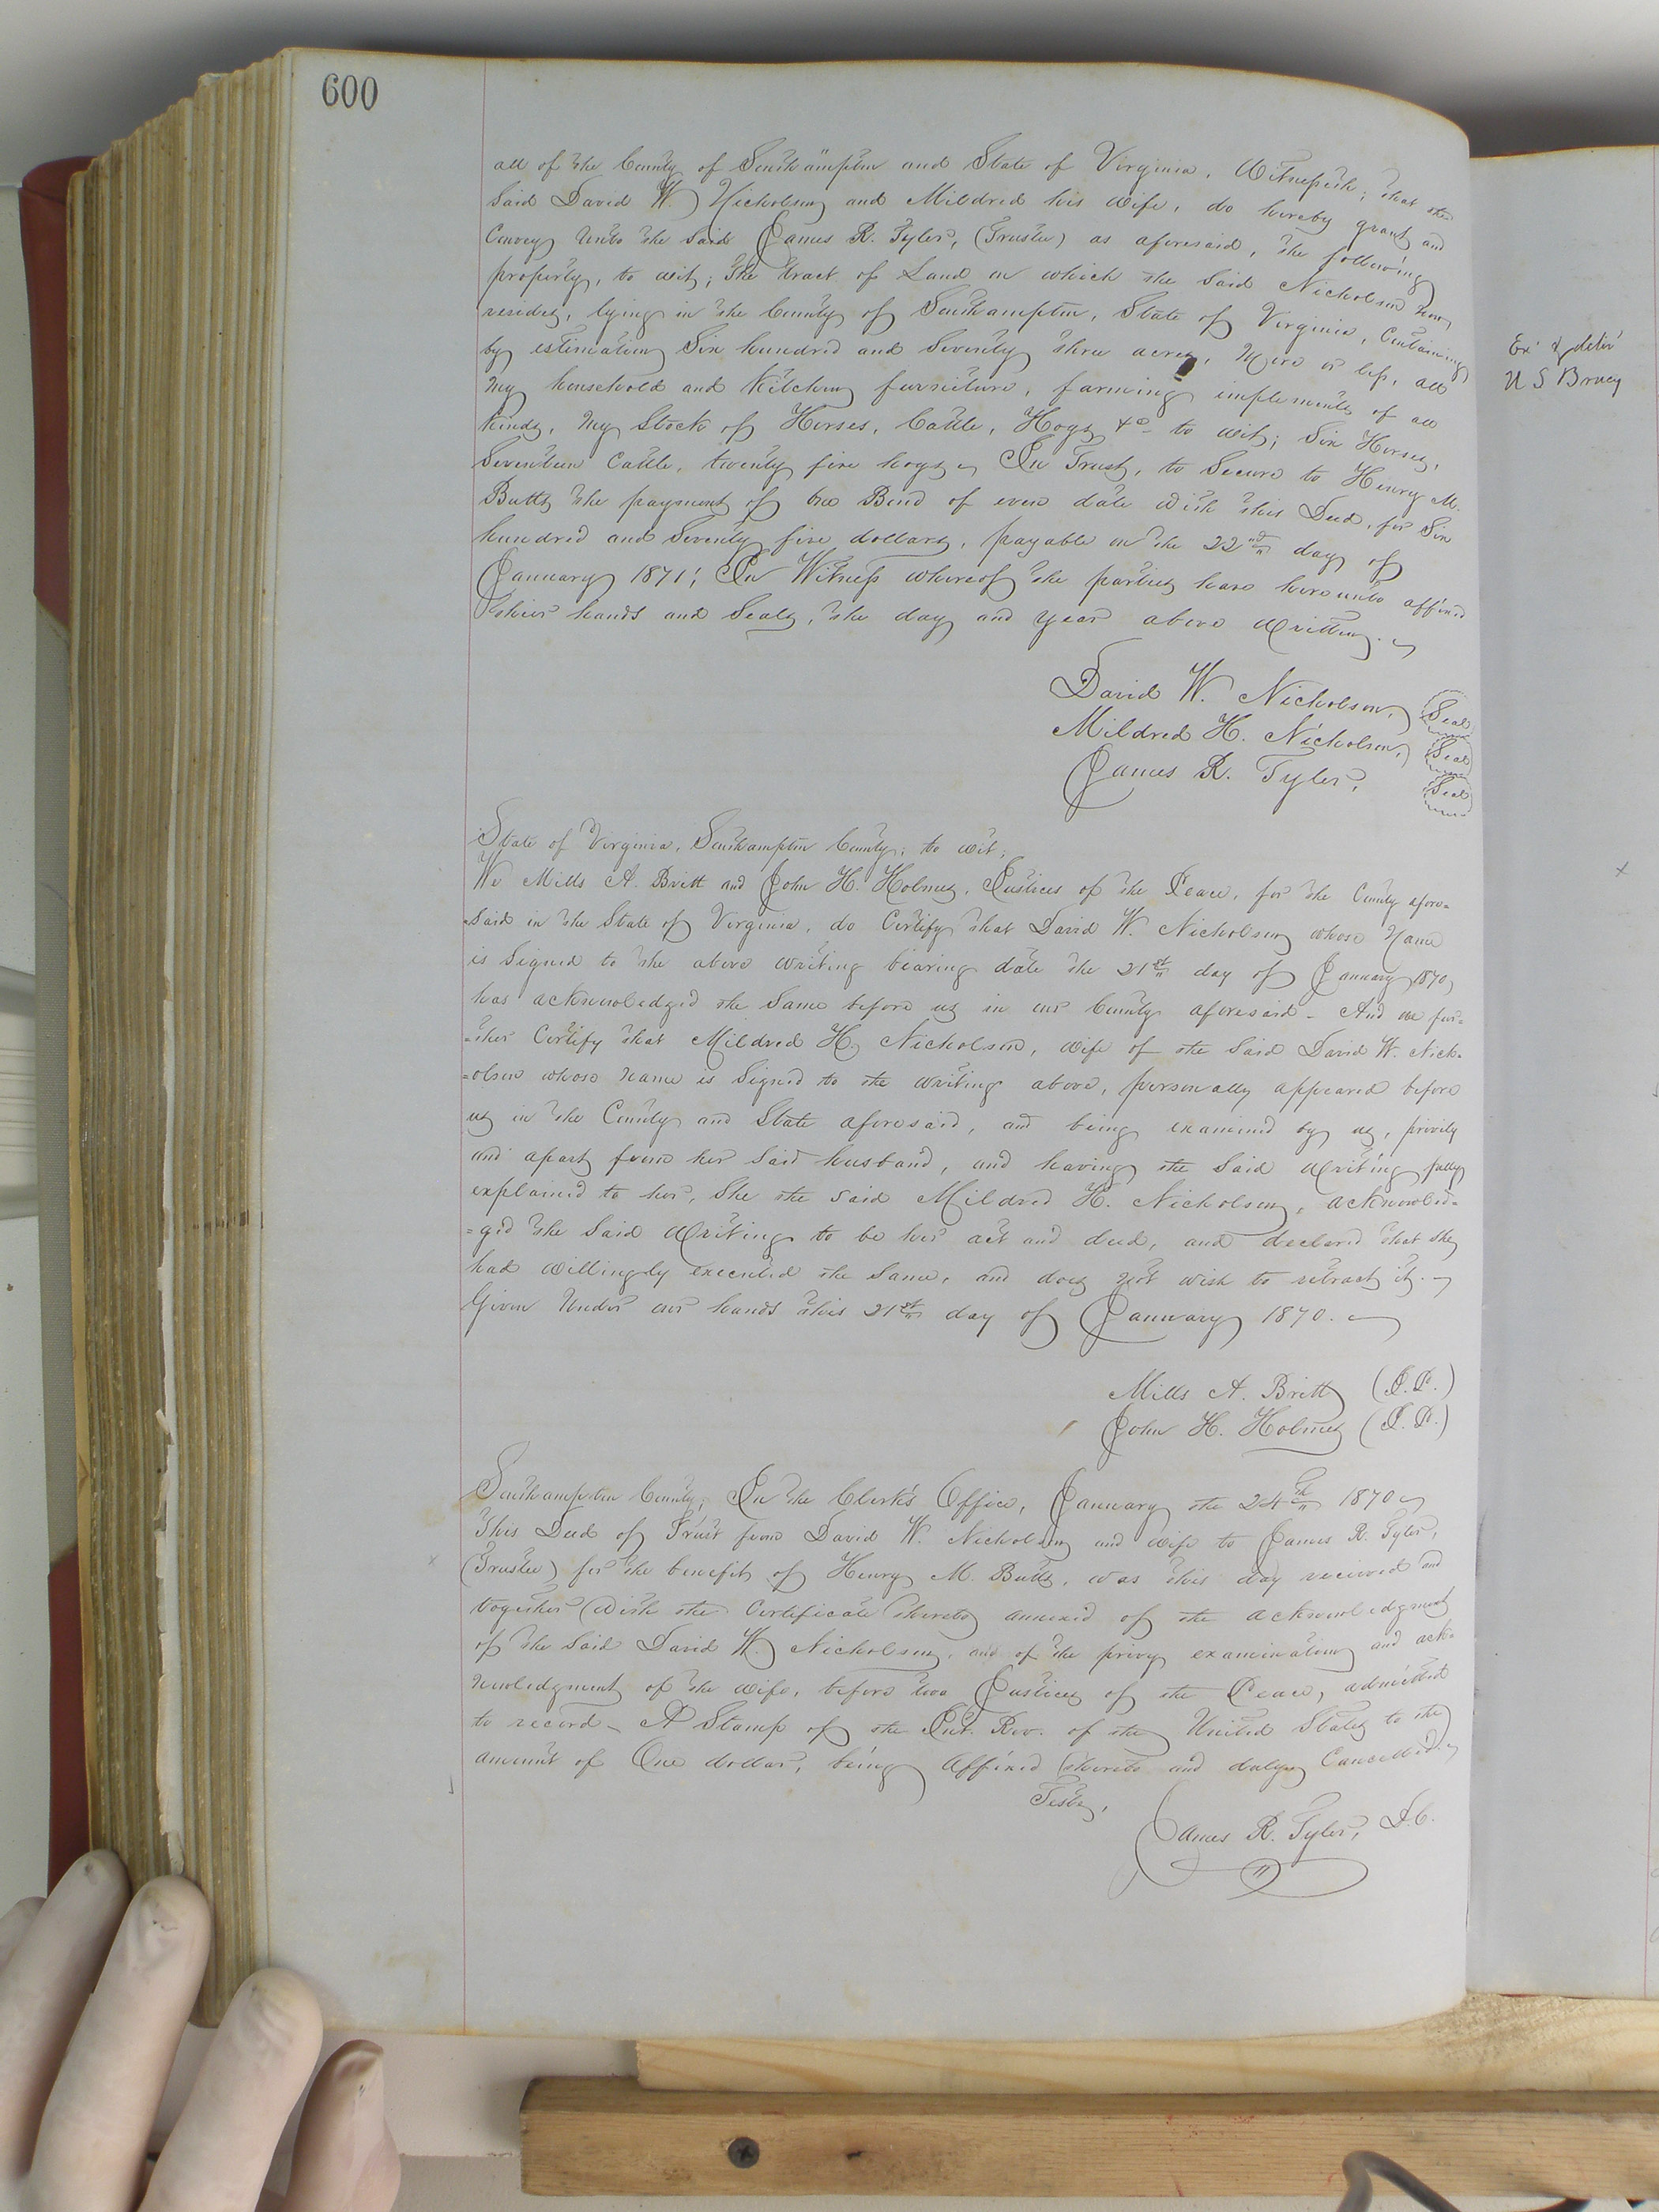 600
all of the County of Southampton and State of Virginia, Witnesseth; that the
said David W. Nicholson and Mildred his wife, do hereby grant and
Convey unto the said James R. Tyler, (Trustee) as aforesaid, the following
property, to wit; The tract of Land on which the said Nicholson now
resides, lying in the County of Southampton, State of Virginia, Containing
by estimation Six hundred and Seventy three acres, more or less, all
my household and Kitchen furniture, farming implements of all
Kinds, my Stock of Horses, Cattle, Hogs &c to wit; Six Horses,
Seventeen Cattle, twenty five hogs In Trust, to Secure to Henry M.
Butts the payment of a Bond of even date with this Deed, for Six
hundred and Seventy five dollars, payable on the 22nd day of
January 1871; In Witness whereof the parties have hereunto affixed
their hands and Seals, the day and year above Written.
David W. Nicholson, Seal
Mildred H. Nicholson, Seal
James R. Tyler, Seal
State of Virginia, Southampton County, to wit;
We Mills A. Britt and John H. Holmes, Justices of the Peace, for the County afore=
=said in the State of Virginia, do Certify that David W. Nicholson whose Name
is Signed to the above writing bearing date the 21st day of January 1870,
has acknowledged the Same before us in our County aforesaid - And we fur=
=ther Certify that Mildred H. Nicholson, wife of the Said David W. Nich=
=olson whose name is Signed to the writing above, personally appeared before
us in the County and State aforesaid, and being examined by us, privily
and apart from her Said husband, and having the Said Writing fully
explained to her, She the said Mildred H. Nicholson, acknowled=
=ged the Said Writing to be her act and deed, and declared that she
had willingly executed the Same, and does not wish to retract it.
Given Under our hands this 21st day of January 1870.
Mills A. Britt (J.P.)
John H. Holmes (J.P.)
Southampton County; In the Clerk's Office, January the 24th 1870
This Deed of Trust from David W. Nicholson and wife to James R. Tyler,
(Trustee) for the benefit of Henry M. Butts, was this day received and
together With the Certificate thereto annexed of the acknowledgment
of the Said David W. Nicholson, and of the privy examination and ack=
nowledgment of the wife, before two Justices of the Peace, admitted
to record - A Stamp of the Int. Rev. of the United States to the
amount of One dollar, being Affixed thereto and duly Cancelled.
Teste,
James R. Tyler, D.C.
Ex' & deliv'